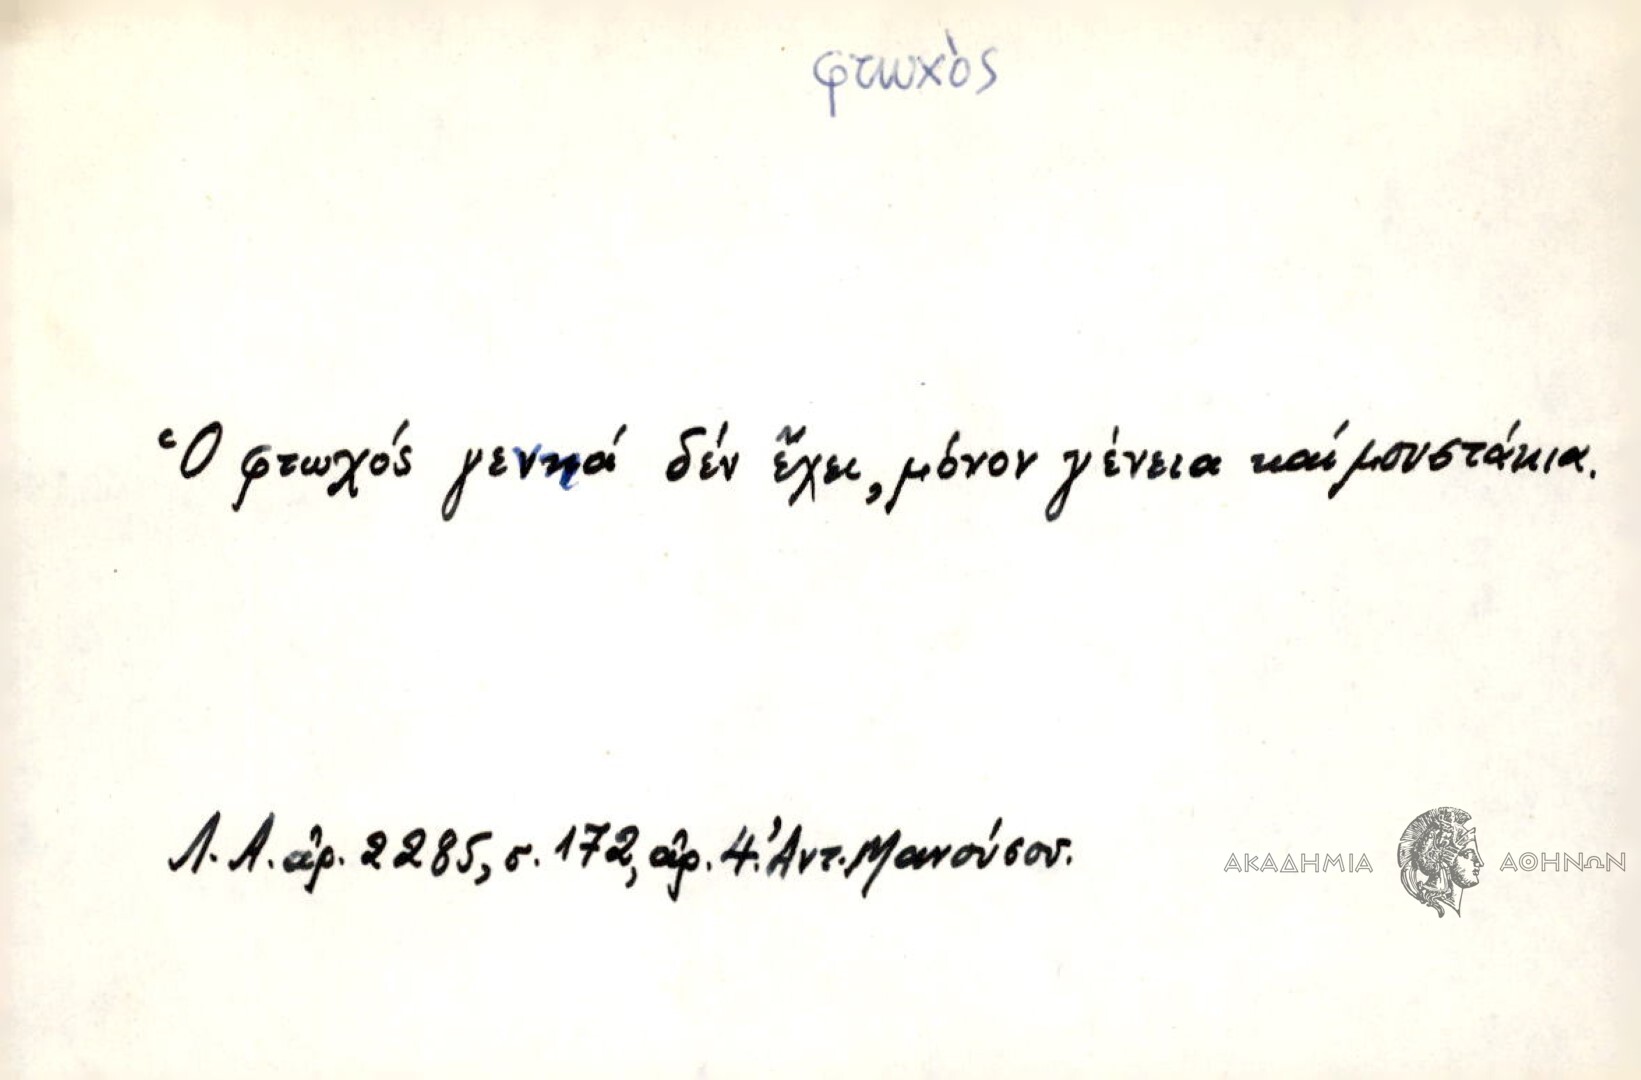 φτωχὸς
Ὁ φτωχός γενηά δέν ἔχει, μόνον γένεια καί μουστάκια.
Λ.Α. ἀρ. 2285, σ. 172, ἀρ. 4. Ἀντ. Μανούσου.
ΑΚΑΔΗΜΙΑ ΑΘΗΝΩΝ